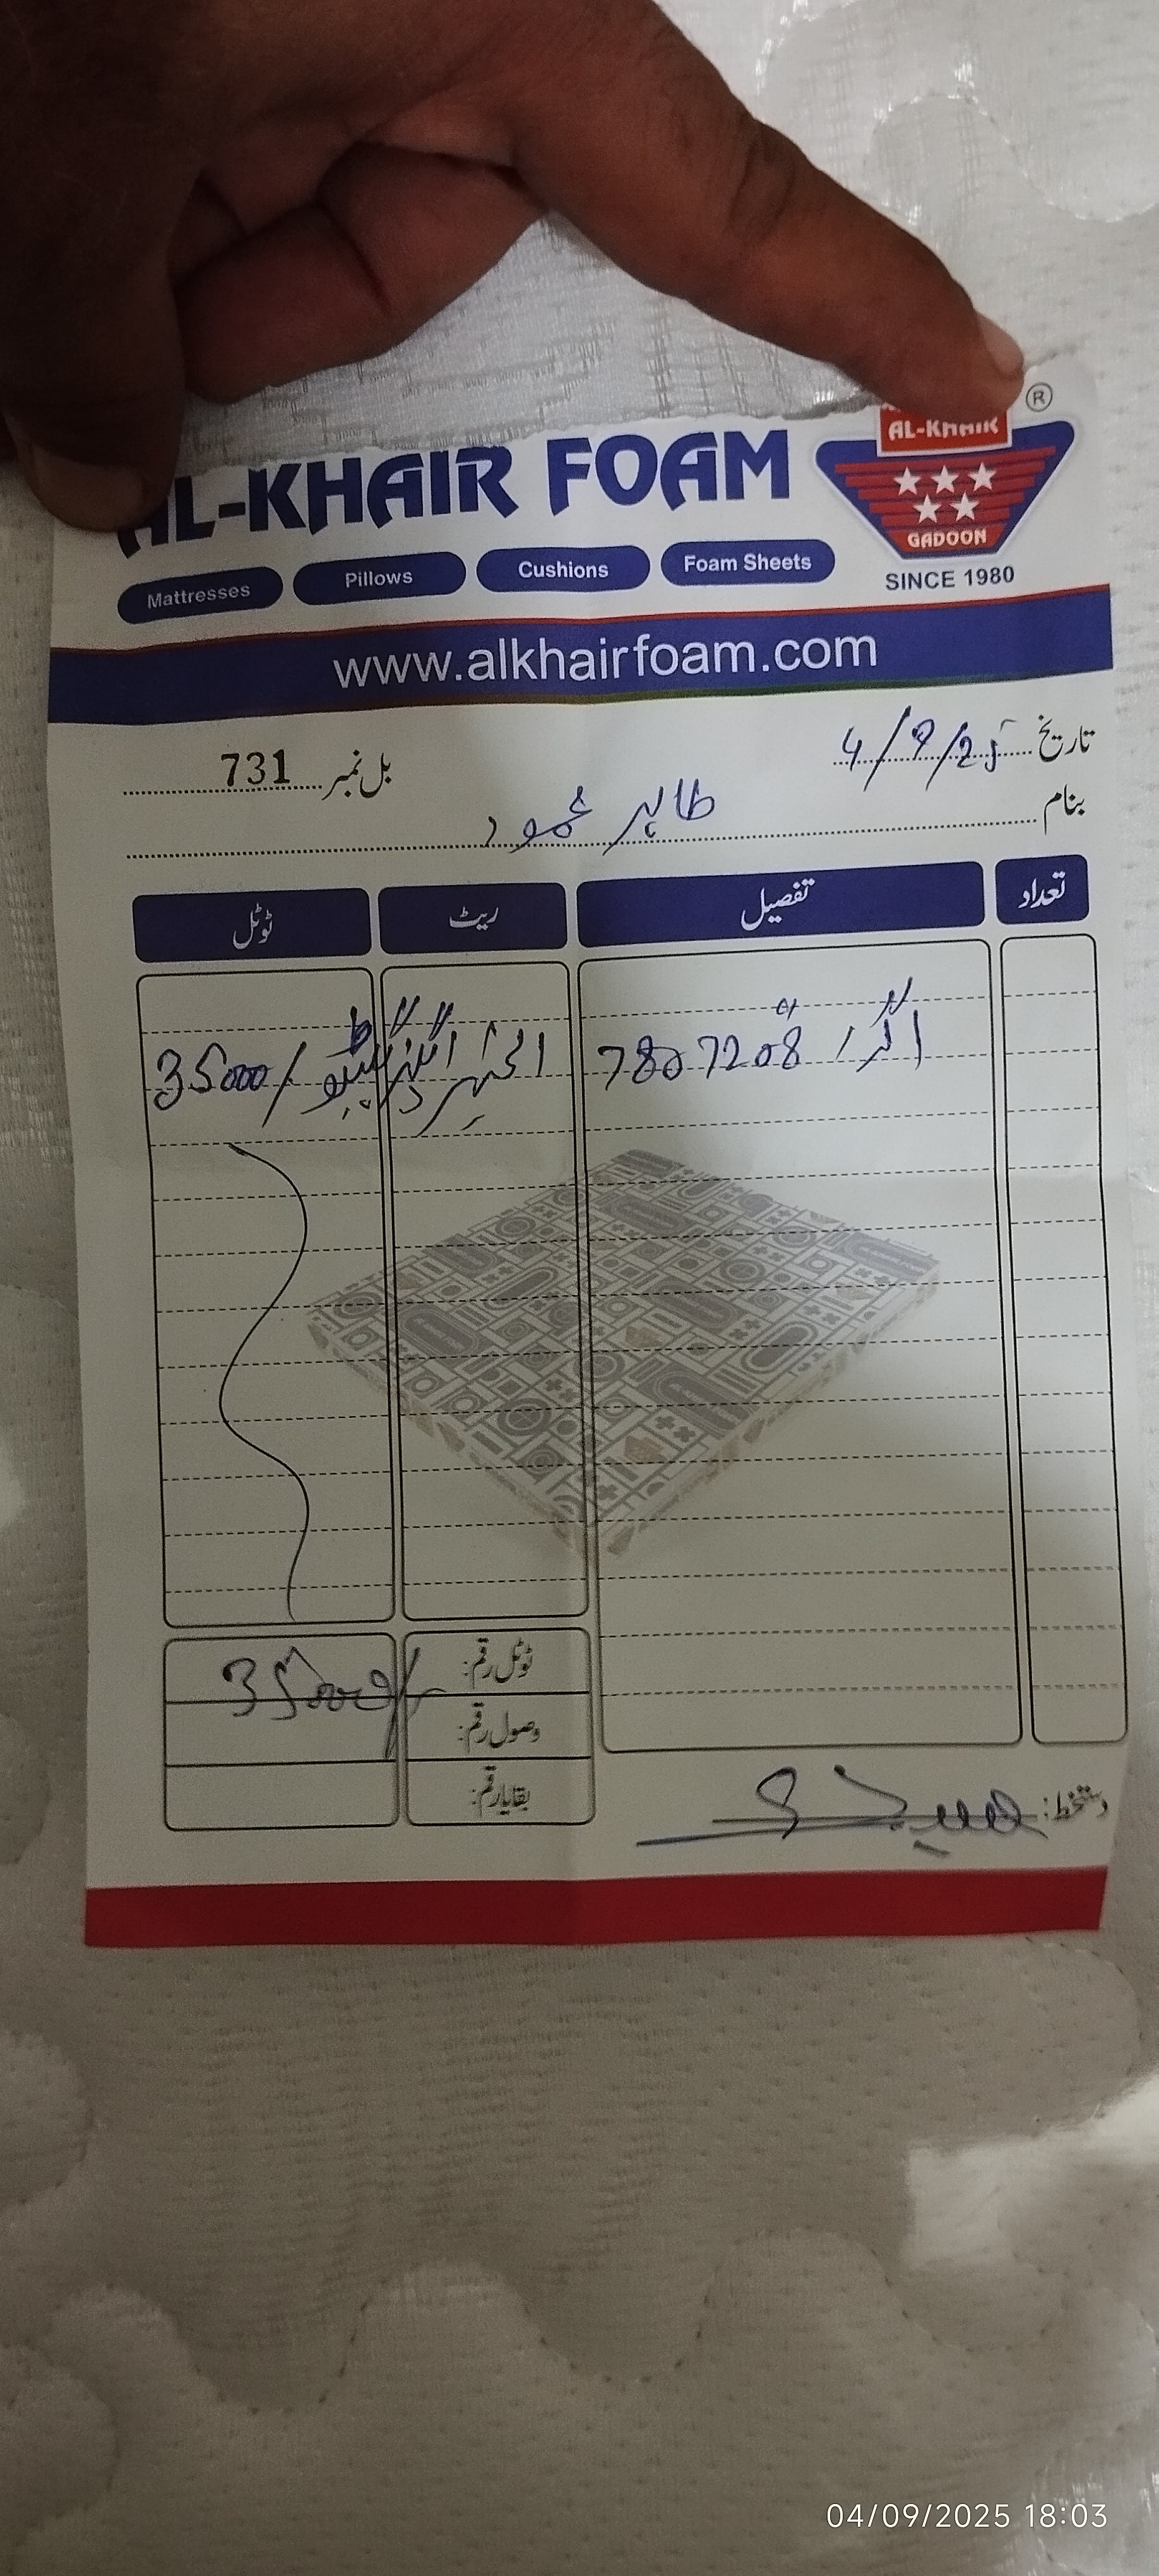 AL-KHAIR FOAM
Mattresses Pillows Cushions Foam Sheets
®
AL-KHAIR
GADOON
SINCE 1980
www.alkhairfoam.com
تاریخ 4/9/25 بل نمبر 731
بنام طاہر محمود
تعداد تفصیل ریٹ ٹوٹل
78 72 8 الخیر 35000/
ٹوٹل رقم: 35000/
وصول رقم:
بقایا رقم:
دستخط:
04/09/2025 18:03